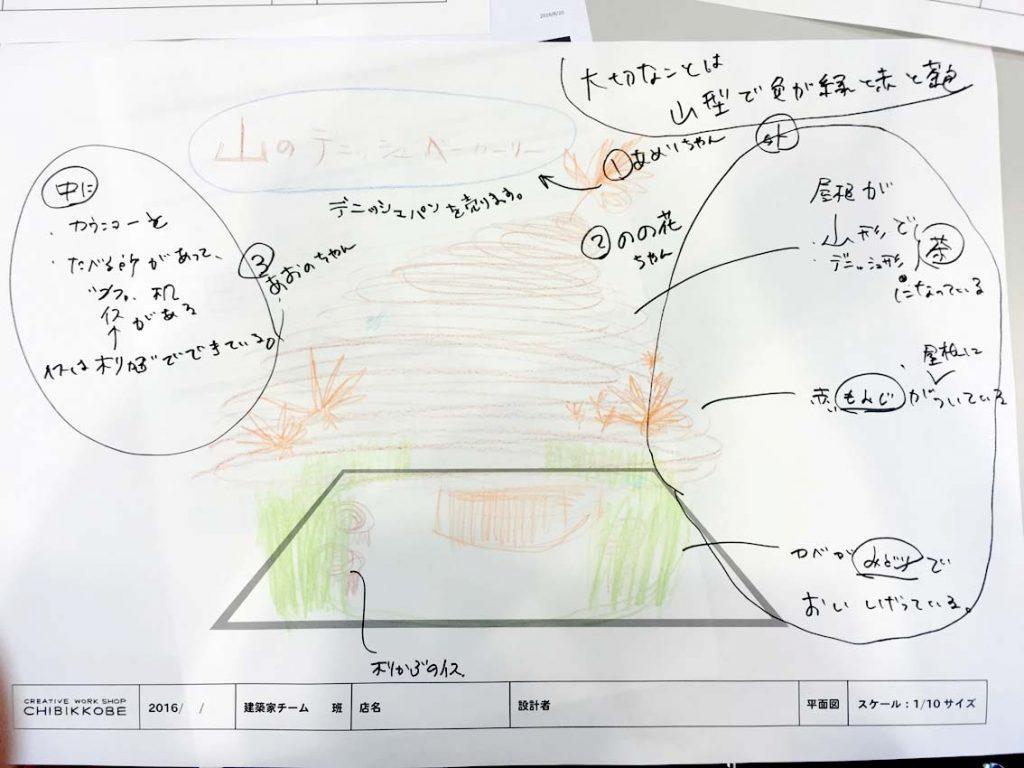 2016/8/20
大切なことは
山型で色が緑と赤と茶色
山のデニッシュベーカーリー
①あめりちゃん
外
デニッシュパンを売ります。
②のの花
ちゃん
屋根が
・山形で
・デニッシュ形 茶
になっている
中に
・カウンターを
・たべる所があって、
机
イス
がある
イスは木り株でできている。
③
あおのちゃん
・屋根に
赤いもみじがついている
カベがみどりで
おいしげっている。
木りかぶのイス
CREATIVE WORK SHOP
CHIBIKKOBE
2016/ /
建築家チーム 班
店名
設計者
平面図
スケール:1/10サイズ